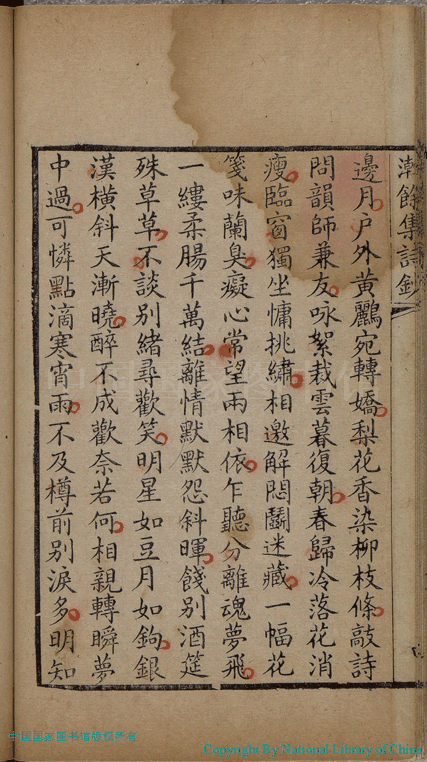 潄餘集詩鈔
邊月戶外黃鸝宛轉嬌梨花香染柳枝條敲詩
問韻師兼友咏絮裁雲暮復朝春歸冷落花消
瘦臨窗獨坐慵挑繡相邀解悶鬭迷藏一幅花
箋味蘭臭癡心常望兩相依乍聽分離魂夢飛
一縷柔腸千萬結離情默默怨斜暉餞別酒筵
殊草草不談別緒尋歡笑明星如豆月如鉤銀
漢橫斜天漸曉醉不成歡奈若何相親轉瞬夢
中過可憐點滴寒宵雨不及樽前別淚多明知
中国国家图书馆版权所有
Copyright By National Library of China